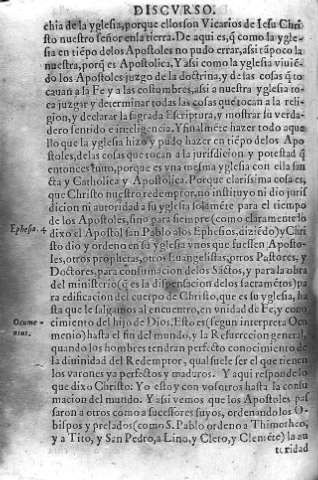 DISCVRSO.
chia de la yglesia, porque ellos son Vicarios de Iesu Chri
sto nuestro señor en la tierra. De aqui es, q̃ como la ygle-
sia en tiẽpo delos Apostoles no pudo errar, assi tãpoco la
nuestra, porq̃ es Apostolica, Y assi como la yglesia viuiẽ-
do los Apostoles juzgo de la doctrina, y de las cosas q̃ to-
cauan a la Fe y a las costumbres, assi a nuestra yglesia to-
ca juzgar y determinar todas las cosas que tocan a la reli-
gion, y declarar la sagrada Escriptura, y mostrar su verda-
dero sentido e inteligencia. Y finalmẽte hazer todo aque
llo que la yglesia hizo y pudo hazer en tiẽpo delos Apo
stoles, de las cosas que tocan a la jurisdicion y potestad q̃
entonces tuuo, porque es vna mesma yglesia con ella san
cta y Catholica y Apostolica. Porque clarissima cosa es,
que Christo nuestro redemptor, no instituyo ni dio jurisf
dicion ni autoridad a su yglesia solamẽte para el tiempo
de los Apostoles, sino para siempre (como claramente lo
Ephesi. 4 dixo el Apostol san Pablo alos Ephesios, diziẽdo) y Chri
sto dio y ordeno en su yglesia vnos que fuessen Aposto-
les, otros prophetas, otros Euangelistas, otros Pastores, y
Doctores, para consumacion delos Sãctos, y para la obra
del ministerio (q̃ es la dispensacion delos sacramẽtos) pa
ra edificacion del cuerpo de Christo, que es su yglesia, ha
sta que le salgamos al encuentro, en vnidad de Fe, y cono
Ocume- cimiento del hijo de Dios. Esto es (segun interpreta Ocu
nius. menio) hasta el fin del mundo, y la Resurrecion general,
quando los hombres tendran perfecto conocimiento de
la diuinidad del Redemptor, qual suele ser el que tienen
los varones ya perfectos y maduros. Y aqui responde lo
que dixo Christo: Yo estoy con vosotros hasta la consu
macion del mundo. Y assi vemos que los Apostoles pas
saron a otros como a sucessores suyos, ordenando los O-
bispos y prelados (como S. Pablo ordeno a Thimotheo,
y a Tito, y San Pedro, a Lino, y Cleto, y Clemẽte) la au
toridad